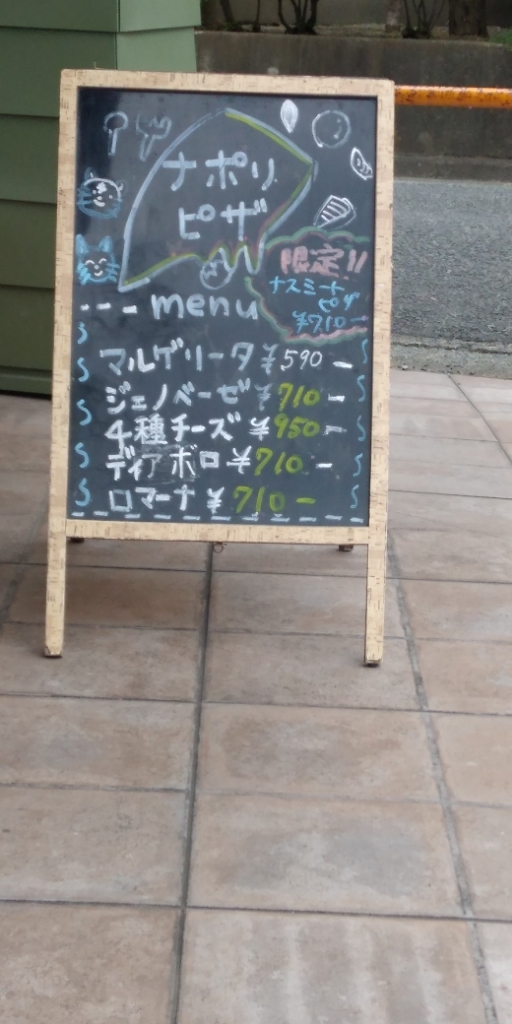 ナポリ
ピザ
限定!!
ナスミート
ピザ
¥710-
menu
マルゲリータ ¥590-
ジェノベーゼ ¥710-
4種チーズ ¥950-
ディアボロ ¥710-
ロマーナ ¥710-